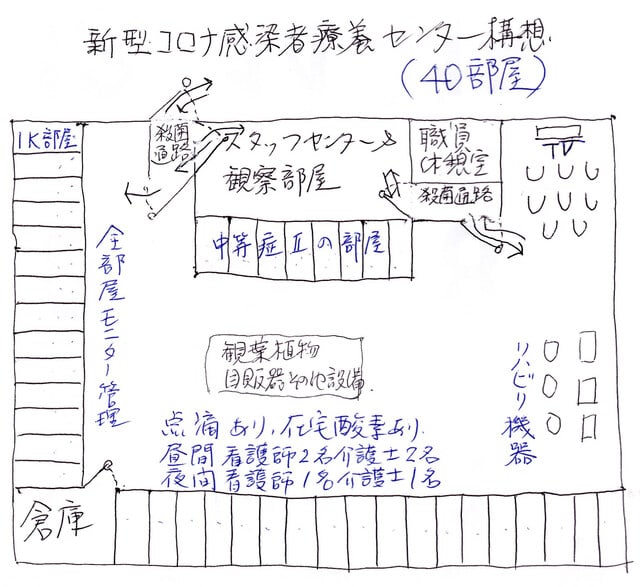 新型コロナ感染者療養センター構想
(40部屋)
1K部屋
殺菌
通路
スタッフセンター&
観察部屋
職員
休憩室
殺菌通路
TV
中等症Ⅱの部屋
全部屋モニター管理
観葉植物
自販器その他設備
リハビリ機器
点滴あり、在宅酸素あり
昼間看護師2名介護士2名
夜間看護師1名介護士1名
倉庫